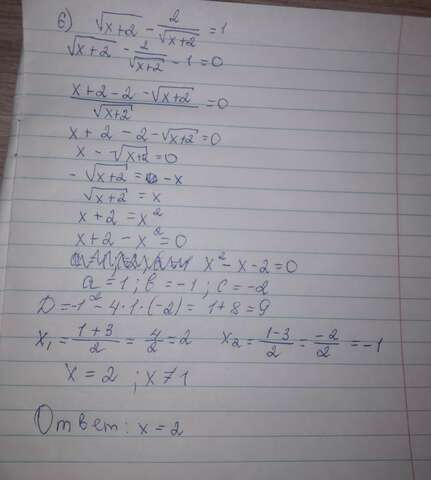 6) √x+2 - 2/√x+2 = 1
√x+2 - 2/√x+2 - 1 = 0
x+2-2-√x+2/√x+2 = 0
x + 2 - 2 - √x+2 = 0
x - √x+2 = 0
- √x+2 = -x
√x+2 = x
x + 2 = x²
x + 2 - x² = 0
x² - x - 2 = 0
a = 1 ; b = -1 ; c = -2
D = -1² - 4·1·(-2) = 1+8 = 9
x₁ = 1+3/2 = 4/2 = 2 x₂ = 1-3/2 = -2/2 = -1
x = 2 ; x ≠ 1
Ответ: x = 2